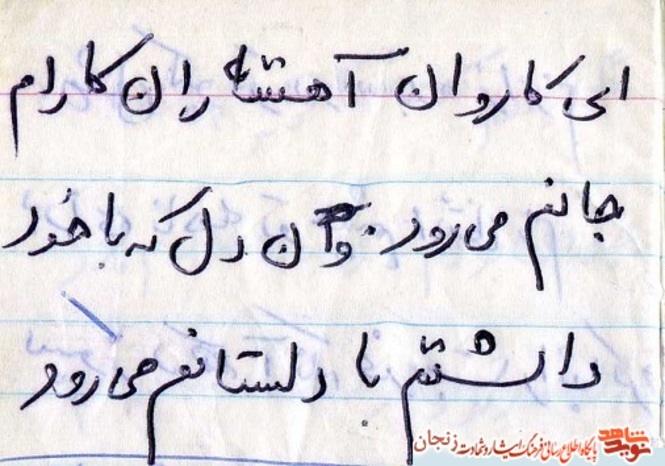 ای کاروان آهسته ران کارام
جانم می رود. وآن دل که با خود
داشتم با دلستانم می رود
نوید شاهد
پایگاه اطلاع رسانی فرهنگ ایثار و شهادت زنجان